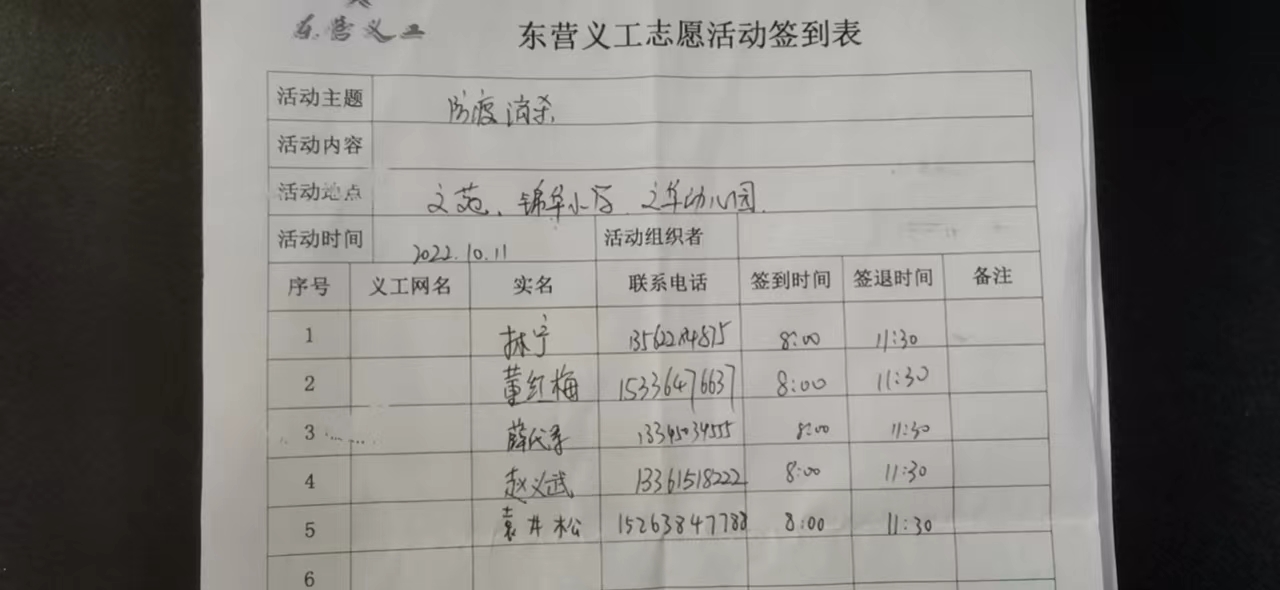 东营义工
东营义工志愿活动签到表
活动主题 防疫消杀
活动内容
活动地点 文苑、锦华小学、文华幼儿园
活动时间 2022.10.11 活动组织者
序号 义工网名 实名 联系电话 签到时间 签退时间 备注
1 林宁 8:00 11:30
2 董红梅 15336476637 8:00 11:30
3 13345034555 8:00 11:30
4 赵义武 13361518222 8:00 11:30
5 袁井松 15263847788 8:00 11:30
6